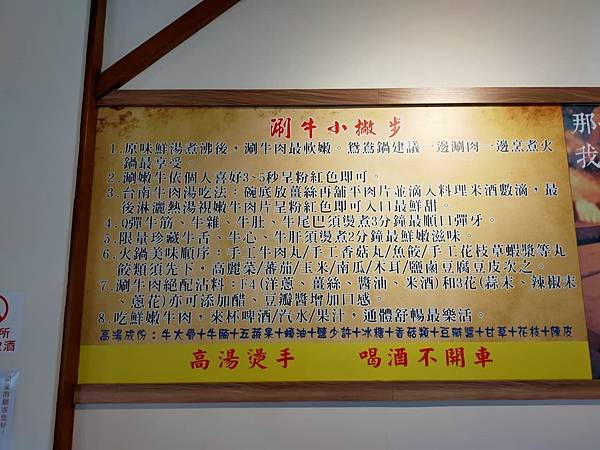 涮牛小撇步
1.原味鮮湯煮沸後，涮牛肉最軟嫩。鴛鴦鍋建議一邊涮肉一邊烹煮火
鍋最享受
2.涮嫩牛依個人喜好3~5秒呈粉紅色即可。
3.台南牛肉湯吃法：碗底放薑絲再舖平肉片並滴入料理米酒數滴，最
後淋灑熱湯視嫩牛肉片呈粉紅色即可入口最鮮甜。
4.Q彈牛筋、牛雜、牛肚、牛尾巴須燙煮3分鐘最順口彈牙。
5.限量珍藏牛舌、牛心、牛肝須燙煮2分鐘最鮮嫩滋味。
6.火鍋美味順序：手工牛肉丸/手工香菇丸/魚餃/手工花枝草蝦漿等丸
餃類須先下，高麗菜/蕃茄/玉米/南瓜/木耳/鹽鹵豆腐豆皮次之。
7.涮牛肉絕配沾料：F4(洋蔥、薑絲、醬油、米酒)和3花(蒜末、辣椒末
、蔥花)亦可添加醋、豆瓣醬增加口感。
8.吃鮮嫩牛肉，來杯啤酒/汽水/果汁，通體舒暢最樂活。
高湯成份：牛大骨+牛腩+五蔬果+蠔油+鹽少許+冰糖+香菇類+豆瓣醬+甘草+花枝+陳皮
高湯燙手 喝酒不開車
那
我
所
酒